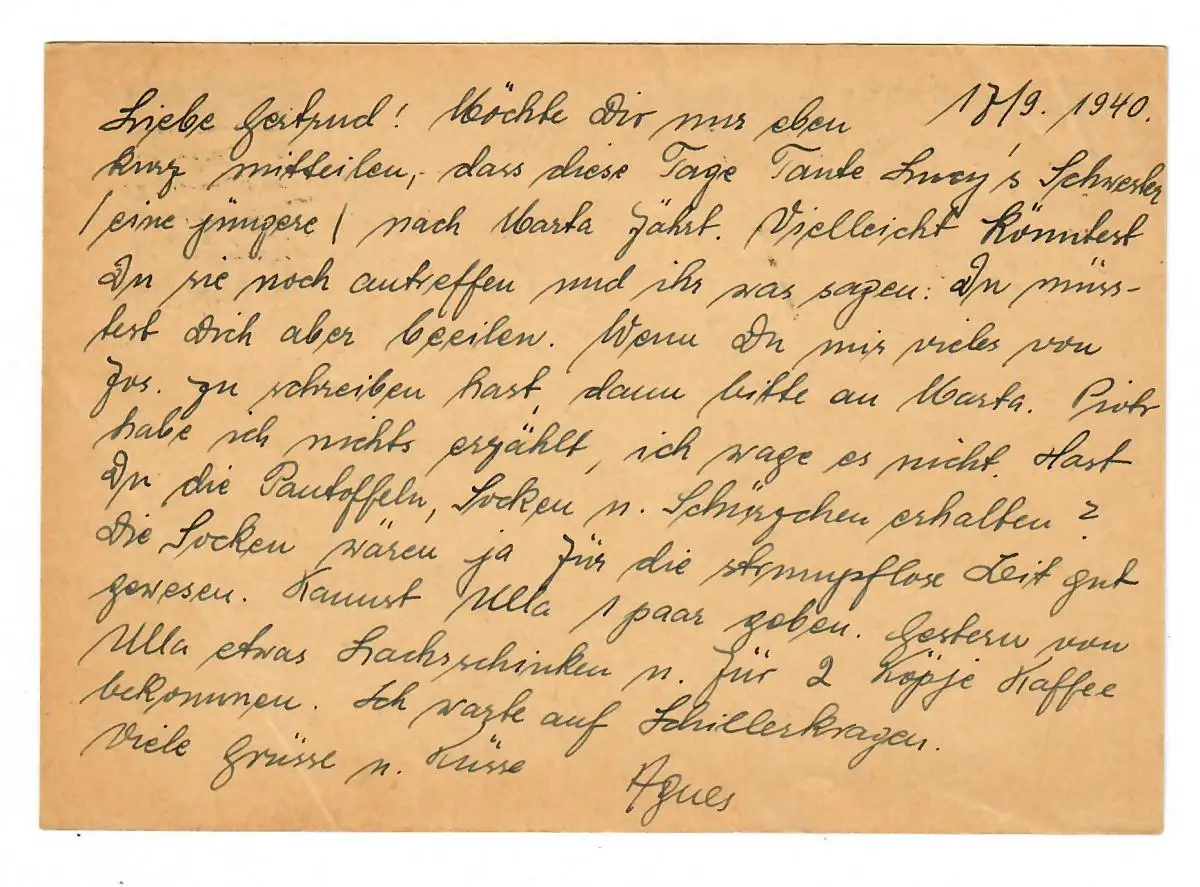 17/9. 1940.
Liebe Gertrud! Möchte Dir nur eben
kurz mitteilen, dass diese Tage Tante Lucy's Schwester
/eine jüngere/ nach Marta fährt. Vielleicht könntest
Du sie noch antreffen und ihr was sagen. Du müss-
test Dich aber beeilen. Wenn Du mir vieles von
Jos. zu schreiben hast, dann bitte an Marta. Piotr
habe ich nichts erzählt, ich wage es nicht. Hast
Du die Pantoffeln, Socken u. Schürzchen erhalten?
Die Socken wären ja für die strumpflose Zeit gut
gewesen. Kannst Ulla 1 paar geben. Gestern von
Ulla etwas Lachsschinken u. für 2 Köpje Kaffee
bekommen. Ich warte auf Schillerkragen.
Viele Grüsse u. Küsse
Agnes